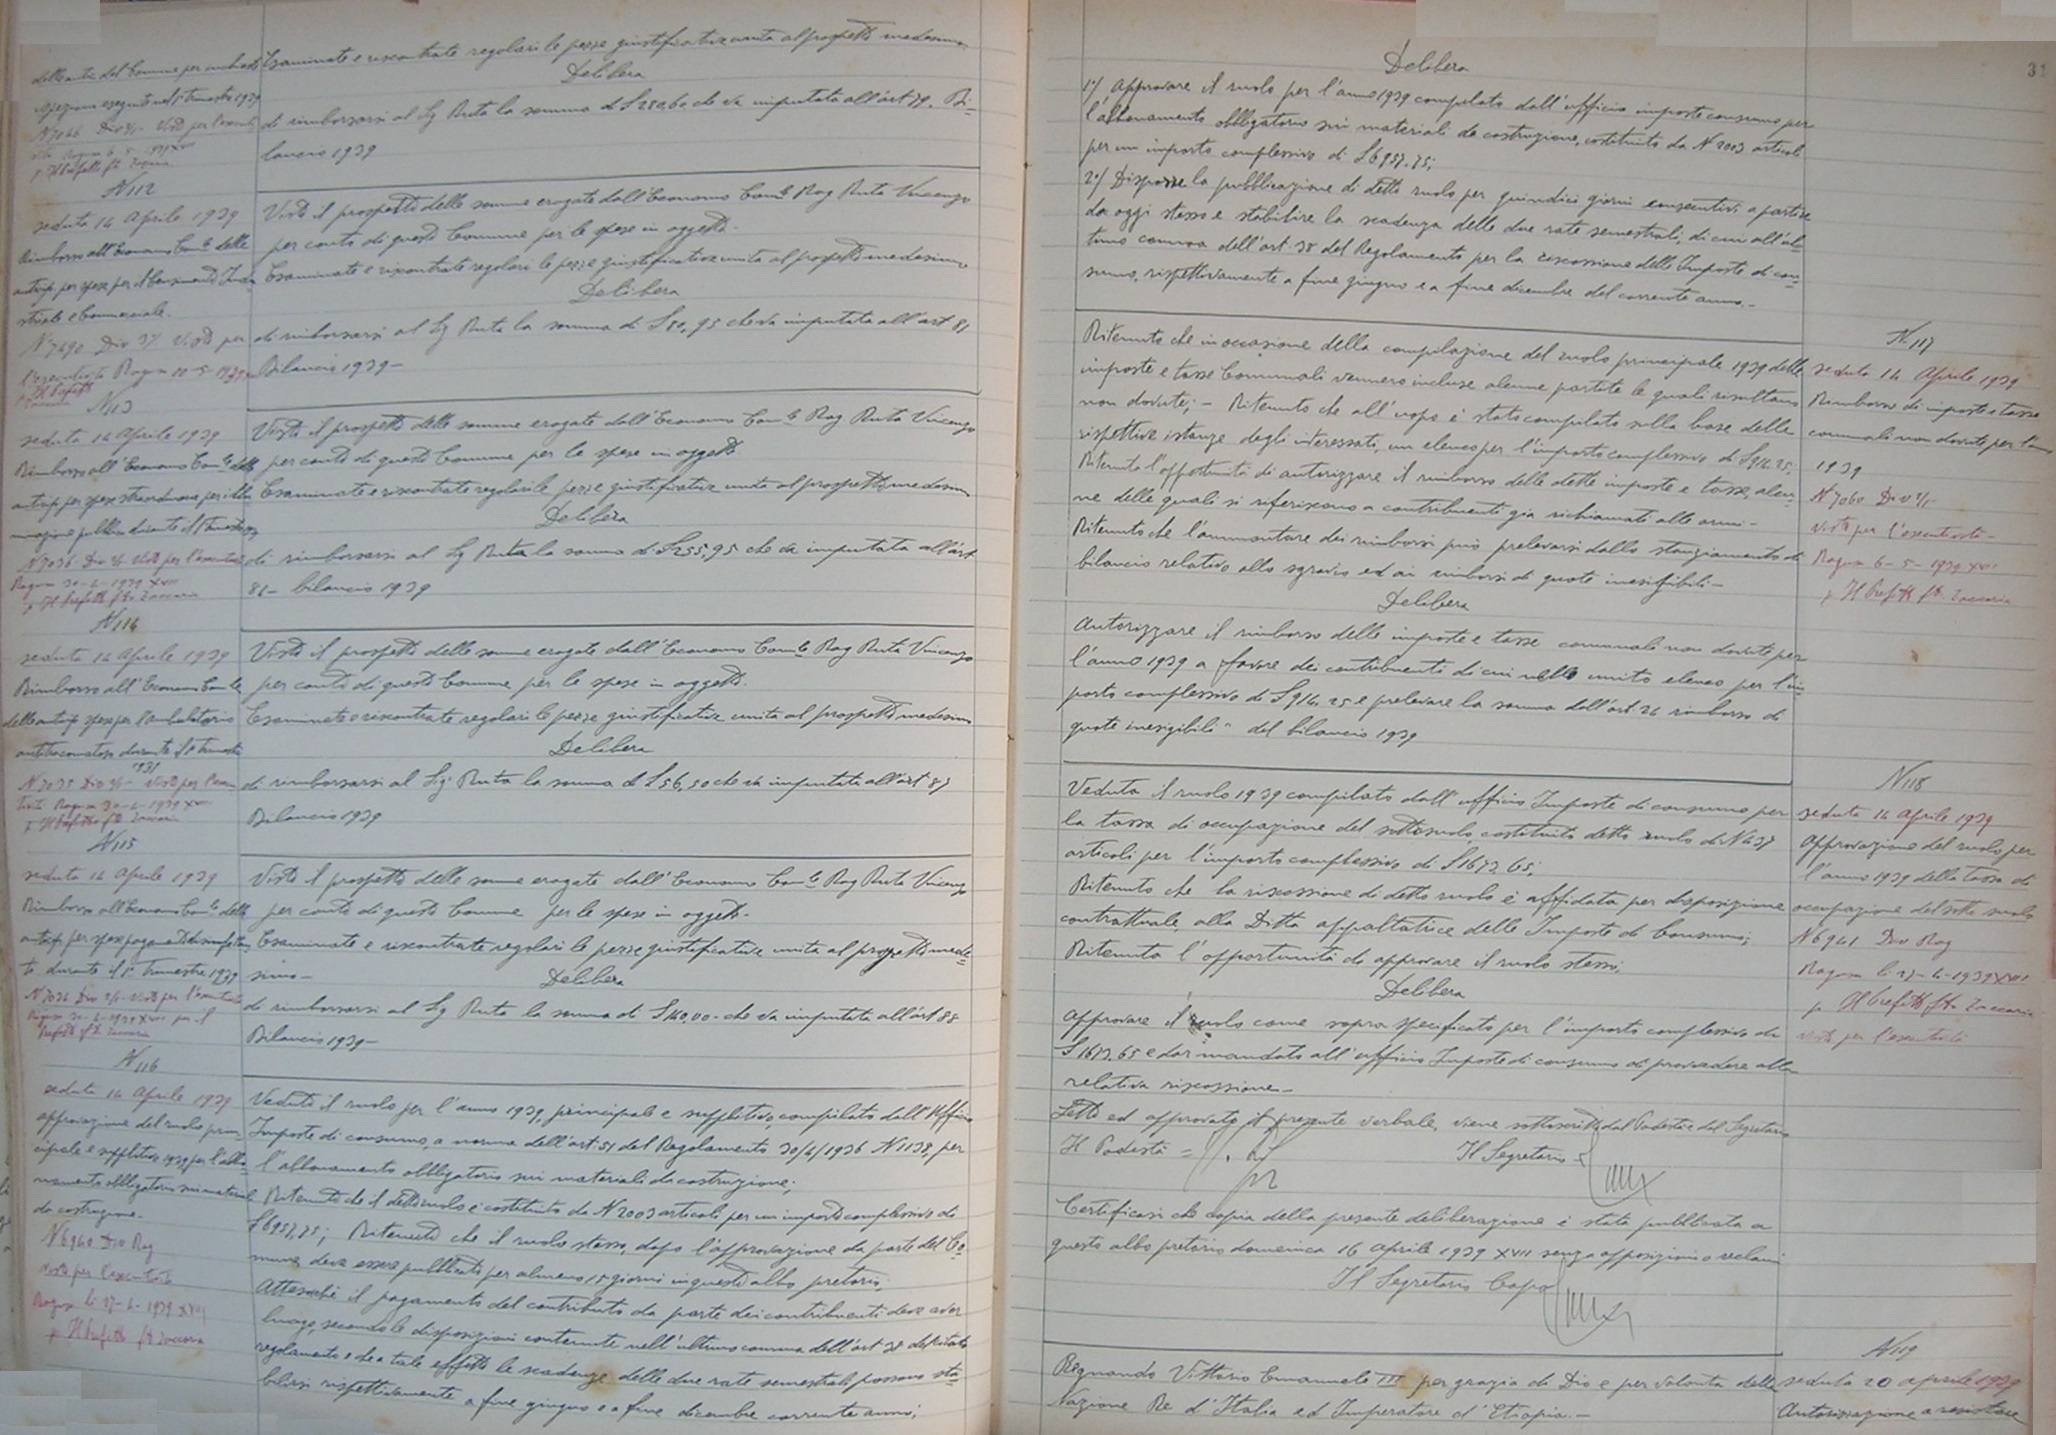 delle antic. dal Comune per
ispezioni eseguite nel 1° trimestre 1939
N 7046 Div 2/1 Visto per l'esecuti
vità Ragusa 6-5-1939 XVII
p Il Prefetto fto Zaccaria
Esaminate e riscontrate regolari le pezze giustificative unite al prospetto medesimo
Delibera
di rimborsarsi al Sig Ruta la somma di £ 280,60 che va imputata all'art 79. Bi-
lancio 1939
N 112
seduta 14 Aprile 1939
Rimborso all'Economo Com.le delle
anticip. per spese per il Censimento Indu
striale e Commerciale.
N° 7490 Div 3/1 Visto per
l'esecutività Ragusa 10-5-1939
p Il Prefetto
Zaccaria
Visto il prospetto delle somme erogate dall'Economo Com.le Rag Ruta Vincenzo
per conto di questo Comune per le spese in oggetto.
Esaminate e riscontrate regolari le pezze giustificative unite al prospetto medesimo
Delibera
di rimborsarsi al Sig Ruta la somma di £ 50,95 che va imputata all'art 81
Bilancio 1939-
N 113
seduta 14 Aprile 1939
Rimborso all'Economo Com.le delle
anticip. per spese straordinarie per illu
minazione pubblica durante il 1° trimestre 39
N 7036 Div 2/1 Visto per l'esecutività
Ragusa 30-4-1939 XVII
p Il Prefetto fto Zaccaria
Visto il prospetto delle somme erogate dall'Economo Com.le Rag Ruta Vincenzo
per conto di questo Comune per le spese in oggetto
Esaminate e riscontrate regolari le pezze giustificative unite al prospetto medesimo
Delibera
di rimborsarsi al Sig Ruta la somma di £ 255,95 che va imputata all'art
81- bilancio 1939
N 114
seduta 14 Aprile 1939
Rimborso all'Economo Com.le
delle anticip. spese per l'ambulatorio
antitracomatoso durante il 1° trimestre
1939
N 7035 Div 2/1- Visto per l'esecu
tività Ragusa 30-4-1939 XVII
p Il Prefetto fto Zaccaria
Visto il prospetto delle somme erogate dall'Economo Com.le Rag Ruta Vincenzo
per conto di questo Comune per le spese in oggetto.
Esaminate e riscontrate regolari le pezze giustificative unite al prospetto medesimo
Delibera
di rimborsarsi al Sig Ruta la somma di £ 56,50 che va imputata all'art 87
Bilancio 1939
N 115
seduta 14 Aprile 1939
Rimborso all'Economo Com.le delle
anticip. per spese
te durante il 1° Trimestre 1939
N 7034 Div 2/1- Visto per l'esecutività
Ragusa 30-4-1939 XVII per il
Prefetto fto Zaccaria
Visto il prospetto delle somme erogate dall'Economo Com.le Rag Ruta Vincenzo
per conto di questo Comune per le spese in oggetto-
Esaminate e riscontrate regolari le pezze giustificative unite al prospetto mede-
simo-
Delibera
di rimborsarsi al Sig Ruta la somma di £ 140,00- che va imputata all'art 88
Bilancio 1939-
N 116
seduta 14 Aprile 1939
approvazione del ruolo prin-
cipale e suppletivo 1939 per l'abbo-
namento obbligatorio sui materiali
da costruzione-
N 6940 Div Rag
visto per l'esecutività
Ragusa li 27-4-1939 XVII
p Il Prefetto fto Zaccaria
Veduto il ruolo per l'anno 1939, principale e suppletivo, compilato dall'Ufficio
Imposte di consumo, a norma dell'art 51 del Regolamento 30/4/1936 N 1138, per
l'abbonamento obbligatorio sui materiali da costruzione;
Ritenuto che il detto ruolo è costituito da N 2003 articoli per un importo complessivo di
£ 6957,75; Ritenuto che il ruolo stesso, dopo l'approvazione da parte del Co-
mune, deve essere pubblicato per almeno 15 giorni in questo albo pretorio;
Attesoché il pagamento del contributo da parte dei contribuenti deve aver
luogo, secondo le disposizioni contenute nell'ultimo comma dell'art 38 del citato
regolamento e che a tale effetto le scadenze delle due rate semestrali possono sta-
bilirsi rispettivamente a fine giugno e a fine dicembre corrente anno;
31
Delibera
1°/ Approvare il ruolo per l'anno 1939 compilato dall'ufficio imposte consumo per
l'abbonamento obbligatorio sui materiali da costruzione, costituito da N 2003 articoli
per un importo complessivo di £ 6957.75;
2°/ Disporre la pubblicazione di detto ruolo per quindici giorni consecutivi a partire
da oggi stesso e stabilire la scadenza delle due rate semestrali, di cui all'ul-
timo comma dell'art. 38 del Regolamento per la riscossione delle Imposte di con-
sumo, rispettivamente a fine giugno e a fine dicembre del corrente anno.-
N 117
seduta 14 Aprile 1939
Rimborso di imposte e tasse
comunali non dovute per l'anno
1939
N 7060 Div 2/1
Visto per l'esecutività-
Ragusa 6-5-1939 XVII
p Il Prefetto fto Zaccaria
Ritenuto che in occasione della compilazione del ruolo principale 1939 delle
imposte e tasse Comunali vennero incluse alcune partite le quali risultano
non dovute;- Ritenuto che all'uopo è stato compilato sulla base delle
rispettive istanze degli interessati, un elenco per l'importo complessivo di £ 914.25;
Ritenuta l'opportunità di autorizzare il rimborso delle dette imposte e tasse, alcu-
ne delle quali si riferiscono a contribuenti già richiamati alle armi-
Ritenuto che l'ammontare dei rimborsi può prelevarsi dallo stanziamento di
bilancio relativo allo sgravio ed ai rimborsi di quote inesigibili-
Delibera
Autorizzare il rimborso delle imposte e tasse comunali non dovute per
l'anno 1939 a favore dei contribuenti di cui nello unito elenco per l'im
porto complessivo di £ 914,25 e prelevare la somma dall'art 24 rimborso di
quote inesigibili" del bilancio 1939
N 118
seduta 14 Aprile 1939
Approvazione del ruolo per
l'anno 1939 della tassa di
occupazione del sotto suolo
N 6941 Div Rag
Ragusa li 27-4-1939 XVII
p Il Prefetto fto Zaccaria
visto per l'esecutività
Veduto il ruolo 1939 compilato dall'ufficio Imposte di consumo per
la tassa di occupazione del sottosuolo, costituito detto ruolo di N 437
articoli per l'importo complessivo di £ 1673,65;
Ritenuto che la riscossione di detto ruolo è affidata per disposizione
contrattuale, alla Ditta appaltatrice delle Imposte di Consumo;
Ritenuta l'opportunità di approvare il ruolo stesso;
Delibera
Approvare il ruolo come sopra specificato per l'importo complessivo di
£ 1673,65 e dar mandato all'ufficio Imposte di consumo di provvedere alla
relativa riscossione-
Letto ed approvato il presente verbale, viene sottoscritto dal Podestà e dal Segretario
Il Podestà = Il Segretario
Certificasi che copia della presente deliberazione è stata pubblicata a
questo albo pretorio domenica 16 aprile 1939 XVII senza opposizioni o reclami
Il Segretario Capo
N 119
seduta 20 aprile 1939
Autorizzazione a resistere
Regnando Vittorio Emanuele III per grazia di Dio e per volontà della
Nazione Re d'Italia ed Imperatore d'Etiopia.-